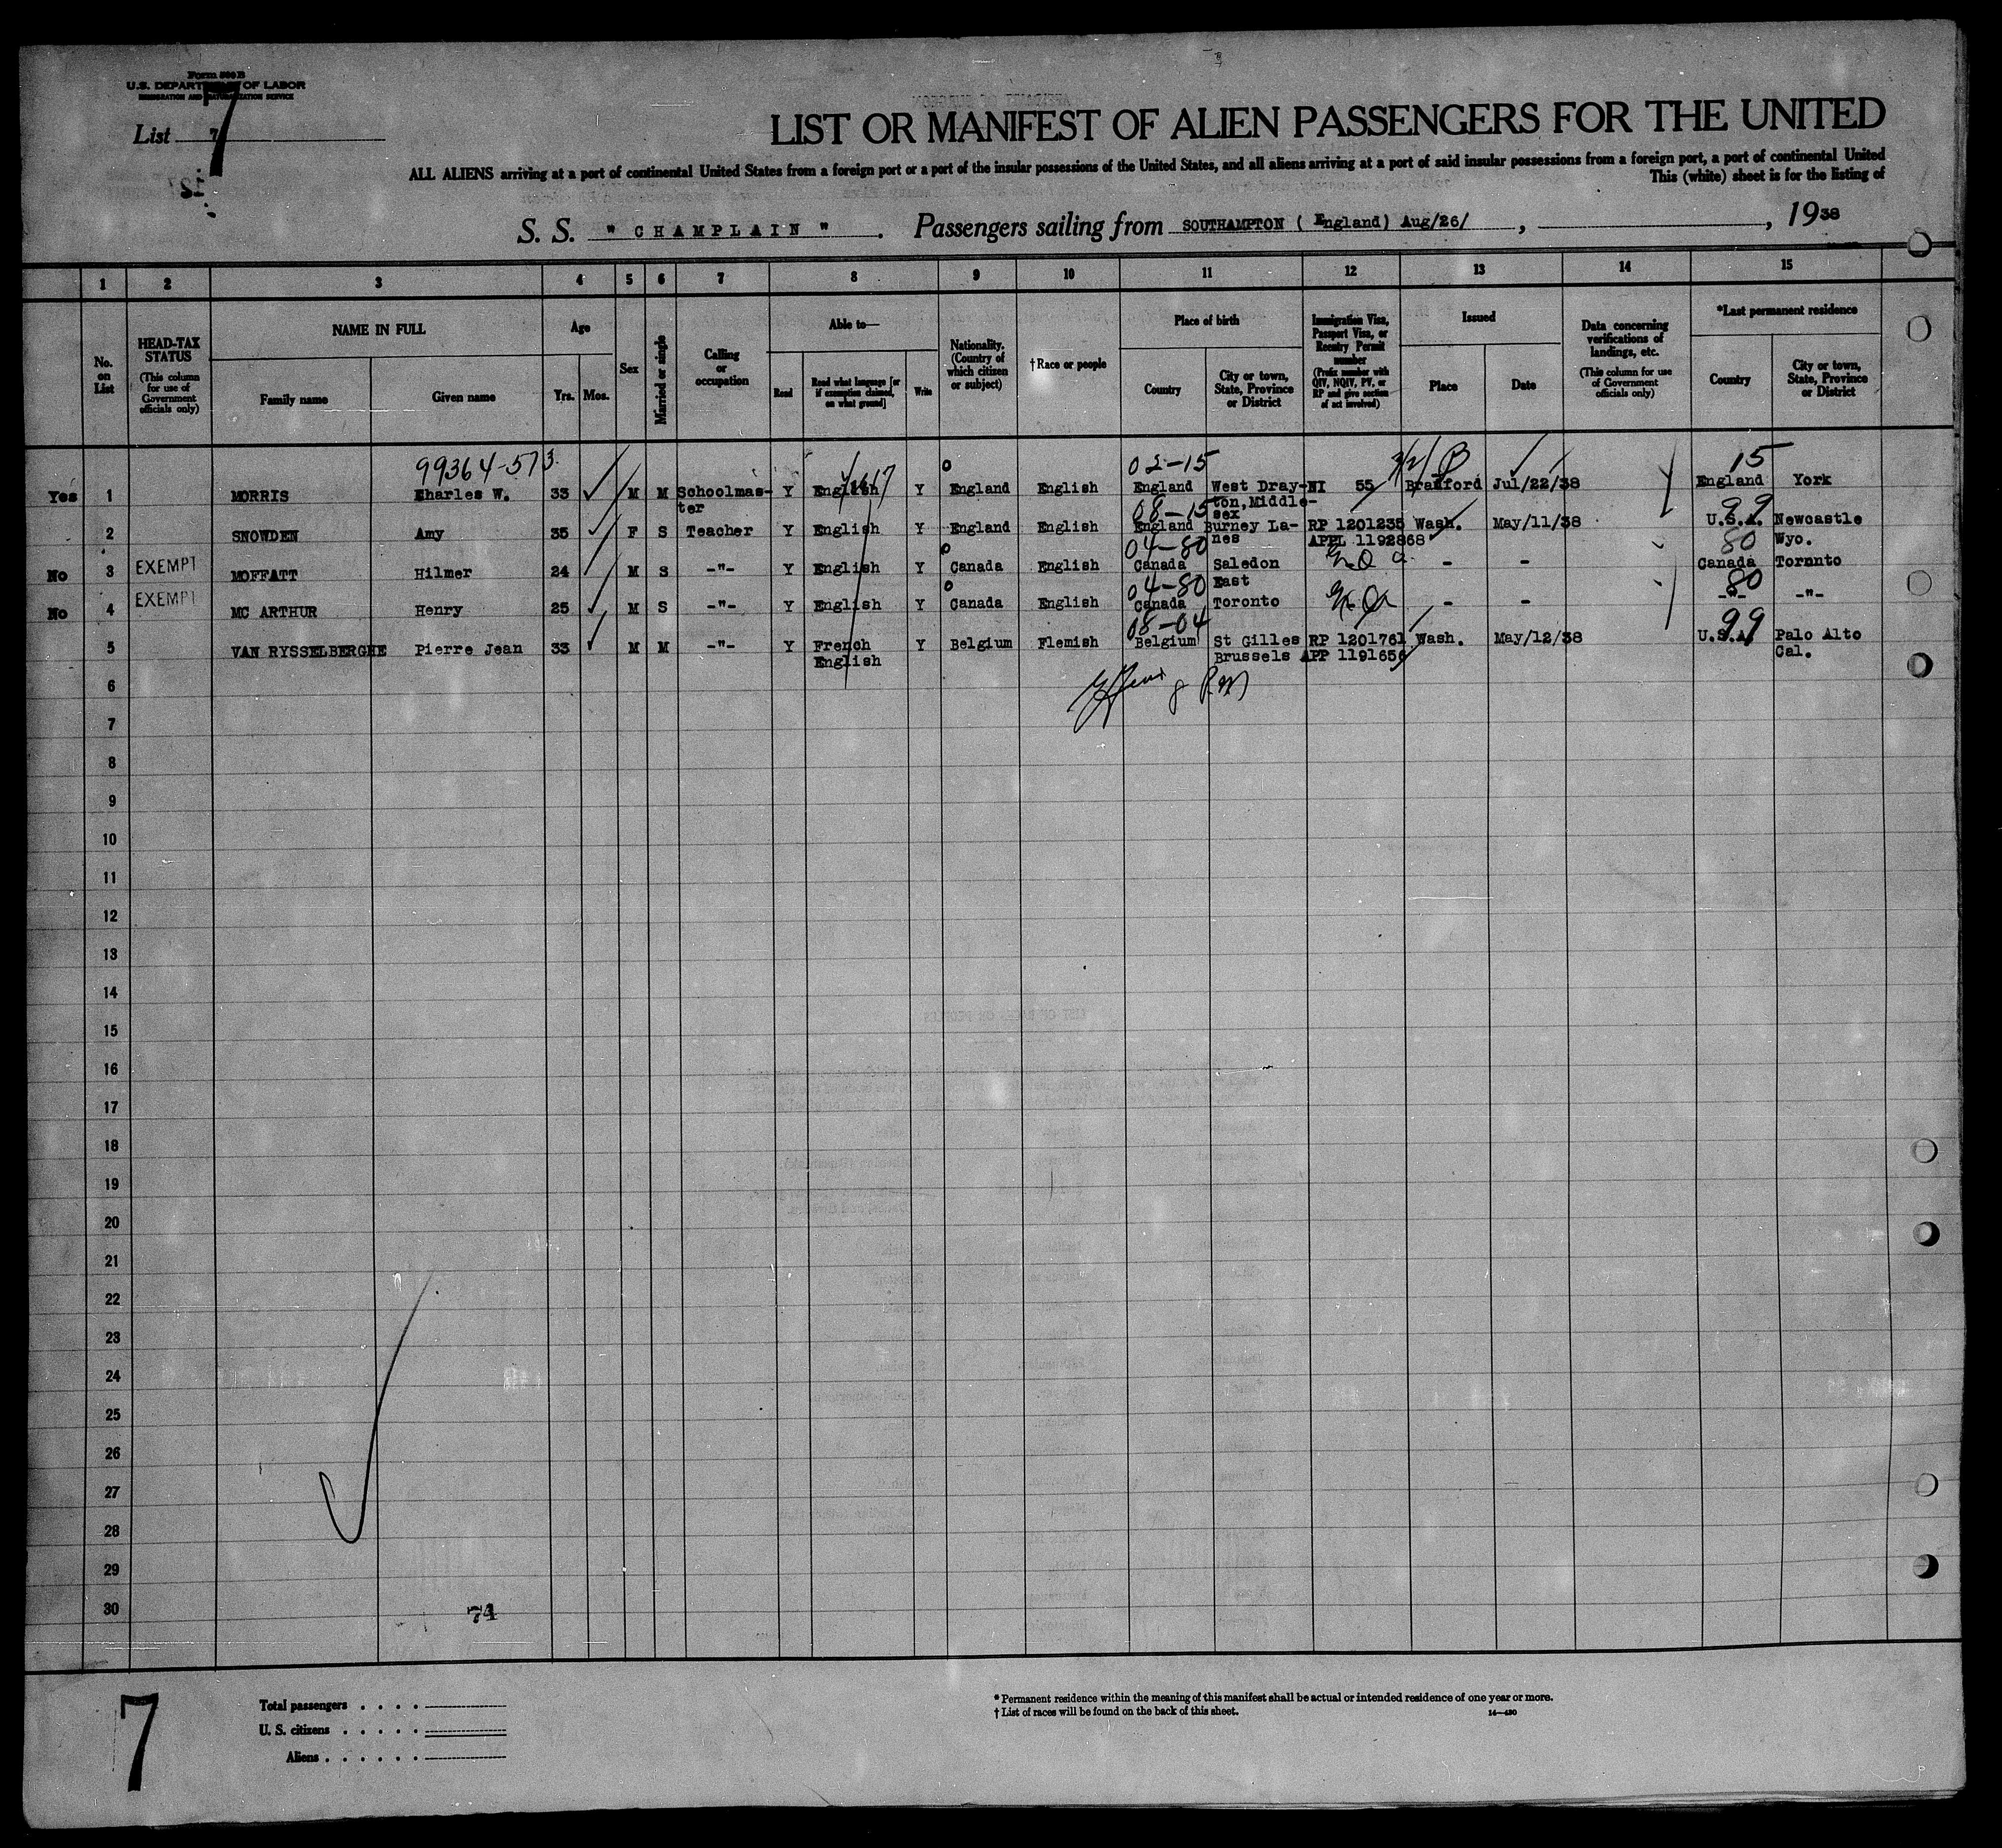 Form 500 B
U.S. DEPARTMENT OF LABOR
IMMIGRATION AND NATURALIZATION SERVICE
List 7
7
LIST OR MANIFEST OF ALIEN PASSENGERS FOR THE UNITED
ALL ALIENS arriving at a port of continental United States from a foreign port or a port of the insular possessions of the United States, and all aliens arriving at a port of said insular possessions from a foreign port, a port of continental United
This (white) sheet is for the listing of
S. S. " CHAMPLAIN " . Passengers sailing from SOUTHAMPTON ( England) Aug/26/ , , 1938
1 2 3 4 5 6 7 8 9 10 11 12 13 14 15
No. on List
HEAD-TAX STATUS (This column for use of Government officials only)
NAME IN FULL
Family name Given name
Age
Yrs. Mos.
Sex
Married or single
Calling or occupation
Able to—
Read Read what language [or if exemption claimed, on what ground] Write
Nationality. (Country of which citizen or subject)
†Race or people
Place of birth
Country City or town, State, Province or District
Immigration Visa, Passport Visa, or Reentry Permit number (Prefix number with QIV, NQIV, PV, or RP and give section of act involved)
Issued
Place Date
Data concerning verifications of landings, etc. (This column for use of Government officials only)
*Last permanent residence
Country City or town, State, Province or District
99364-573 02-15 15
Yes 1 MORRIS Charles W. 33 M M Schoolmas- Y English Y England English England West Dray- NI 55 Bradford Jul/22/38 England York
ter ton, Middle-
sex
08-15 99
2 SNOWDEN Amy 35 F S Teacher Y English Y England English England Burney La- RP 1201235 Wash. May/11/38 U.S.A. Newcastle
nes APPL 1192868 Wyo.
04-80 80
No 3 EXEMPT MOFFATT Hilmer 24 M S -"- Y English Y Canada English Canada Saledon - - Canada Toronto
East
04-80 80
No 4 EXEMPT MC ARTHUR Henry 25 M S -"- Y English Y Canada English Canada Toronto - - -"- -"-
08-04 99
5 VAN RYSSELBERGHE Pierre Jean 33 M M -"- Y French Y Belgium Flemish Belgium St Gilles RP 1201761 Wash. May/12/38 U.S.A. Palo Alto
English Brussels APP 1191656 Cal.
6
7
8
9
10
11
12
13
14
15
16
17
18
19
20
21
22
23
24
25
26
27
28
29
30
74
7
Total passengers . . . .
U. S. citizens . . . . .
Aliens . . . . . .
* Permanent residence within the meaning of this manifest shall be actual or intended residence of one year or more.
† List of races will be found on the back of this sheet. 14—430